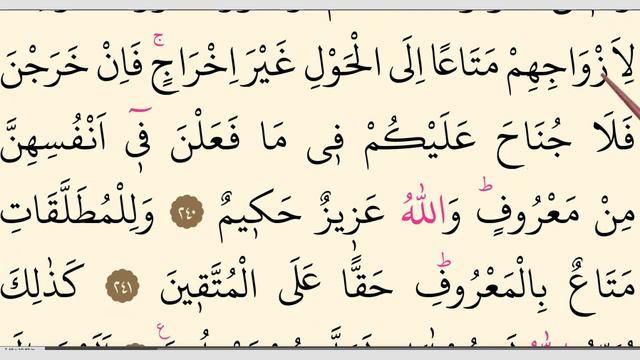 لِاَزْوَاجِهِمْ مَتَاعًا اِلَى الْحَوْلِ غَيْرَ اِخْرَاجٍۚ فَاِنْ خَرَجْنَ
فَلَا جُنَاحَ عَلَيْكُمْ فٖى مَا فَعَلْنَ فٖٓى اَنْفُسِهِنَّ
مِنْ مَعْرُوفٍؕ وَاللّٰهُ عَزٖيزٌ حَكٖيمٌ ﴿٢٤٠﴾ وَلِلْمُطَلَّقَاتِ
مَتَاعٌ بِالْمَعْرُوفِؕ حَقًّا عَلَى الْمُتَّقٖينَ ﴿٢٤١﴾ كَذٰلِكَ